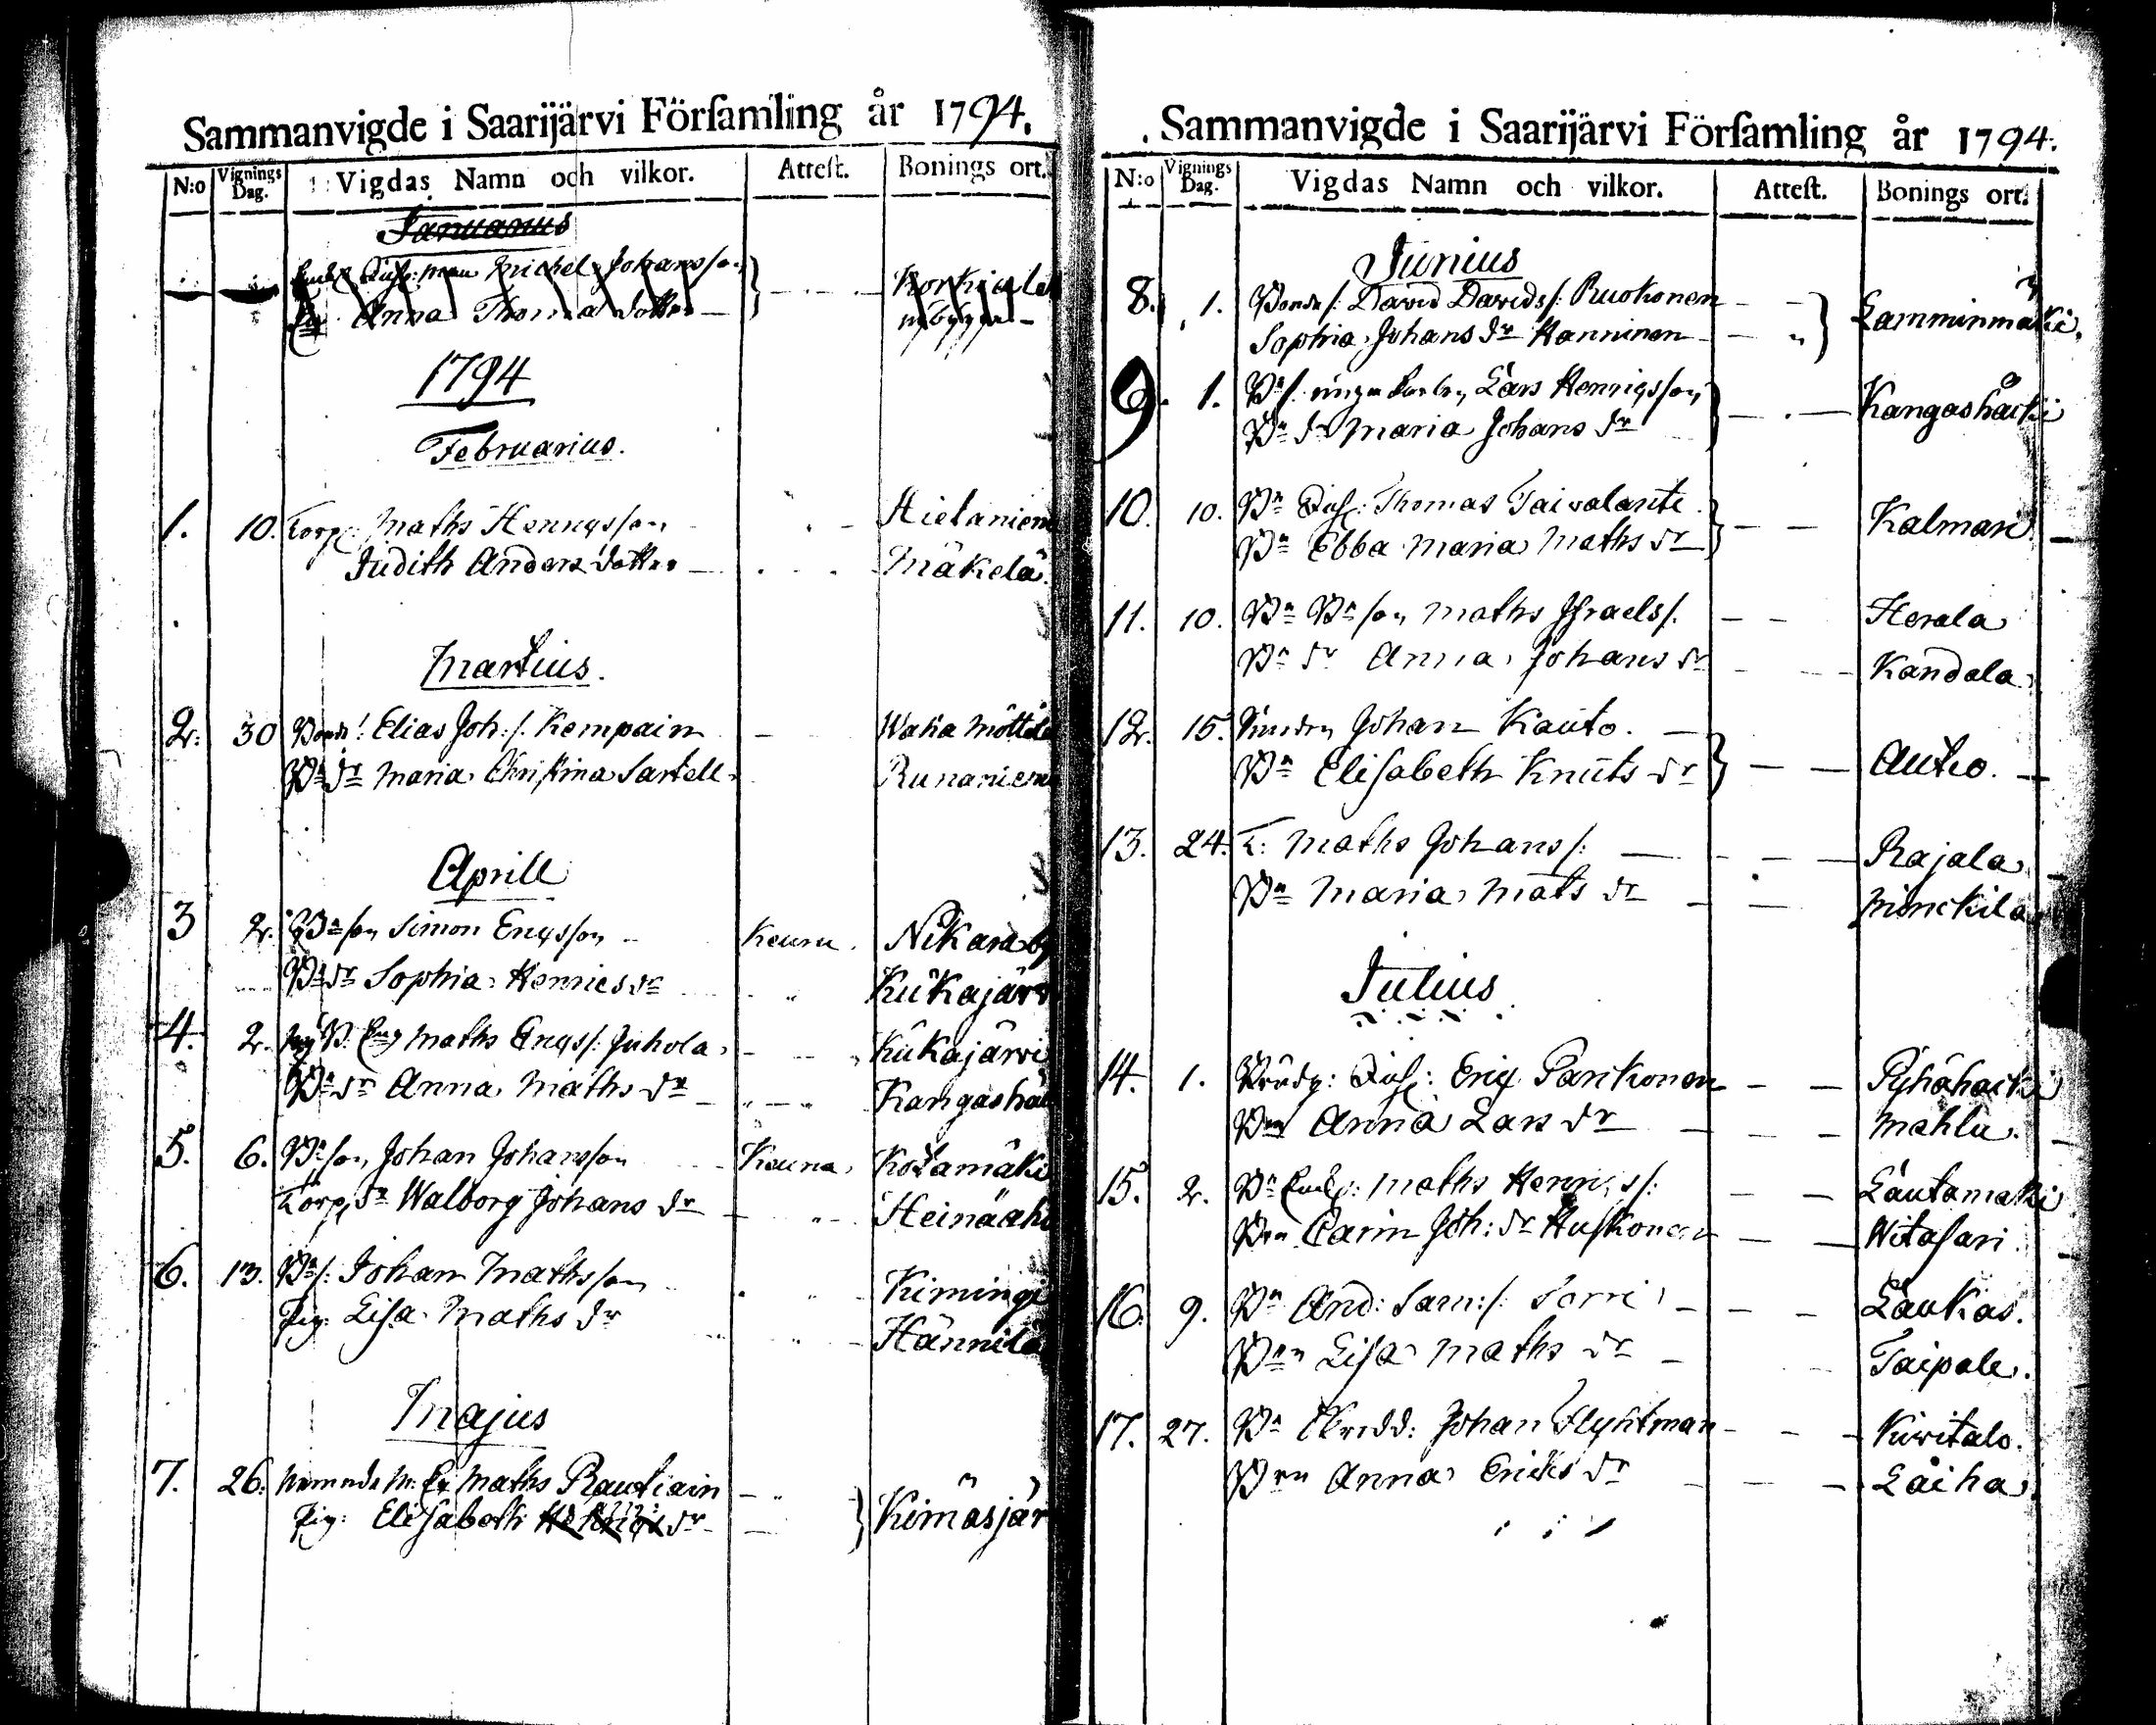 Sammanvigde i Saarijärvi Förſamling år 1794.
N:o Vignings Dag. Vigdas Namn och vilkor. Atteſt. Bonings ort.
Januarius
Michel Johansson
Anna Thomadotter
1794
Februarius.
1. 10. Torp: Maths Henrigsson Hietaniem
Judith Andersdotter Mäkelä
Martius.
2. 30 Bonde: Elias Joh: s. Kempain Waha Möttölä
Bn dr Maria Christina Sartell Runaniem
Aprill
3 2. Bn son Simon Ericsson Keuru Nikaraby
Bn dr Sophia Henrics dr Kükajärv
4. 2. Maths Erics s: Juhola Kükajärvi
Bn dr Anna Maths dr Kangashä
5. 6. Bn son Johan Johansson Keuru Kotamäki
Torp dr Walborg Johans dr Heinäaho
6. 13. Bn s: Johan Mathsson Kimingi
Pig: Lisa Maths dr Hännilä
Majus
7. 26. Nämnde m. Maths Rautiain
Pig: Elisabeth dr Kimäsjär
Sammanvigde i Saarijärvi Förſamling år 1794.
N:o Vignings Dag. Vigdas Namn och vilkor. Atteſt. Bonings ort.
Junius
8. 1. Bonde s: David Davids s: Ruokonen Lamminmäki.
Sophia Johans dr Hanninen
9. 1. Bn s. Lars Henrigsson Kangashäcki
Bn dr Maria Johans dr
10. 10. Bn Thomas Taivalanti Kalmari
Bn Ebba Maria Maths dr
11. 10. Bn Bn son Maths Iſraels s. Herala
Bn dr Anna Johans dr Kandala
12. 15. Johan Kauto. Autio.
Bn Eliſabeth Knuts dr
13. 24. T: Maths Johans s: Rajala
Bn Maria Mats dr Minckila
Julius
14. 1. Eric Parkonen Pyhähäcki
Anna Lars dr Mahlu.
15. 2. Bn Maths Henrics s: Lautamaki
Carin Joh: dr Huſkonen Witaſari.
16. 9. Bn And: Sam: s: Sorri Laukas.
Liſa Maths dr Taipale.
17. 27. Bn Skrädd: Johan Flyktman Kivitalo.
Anna Ericks dr Laiha